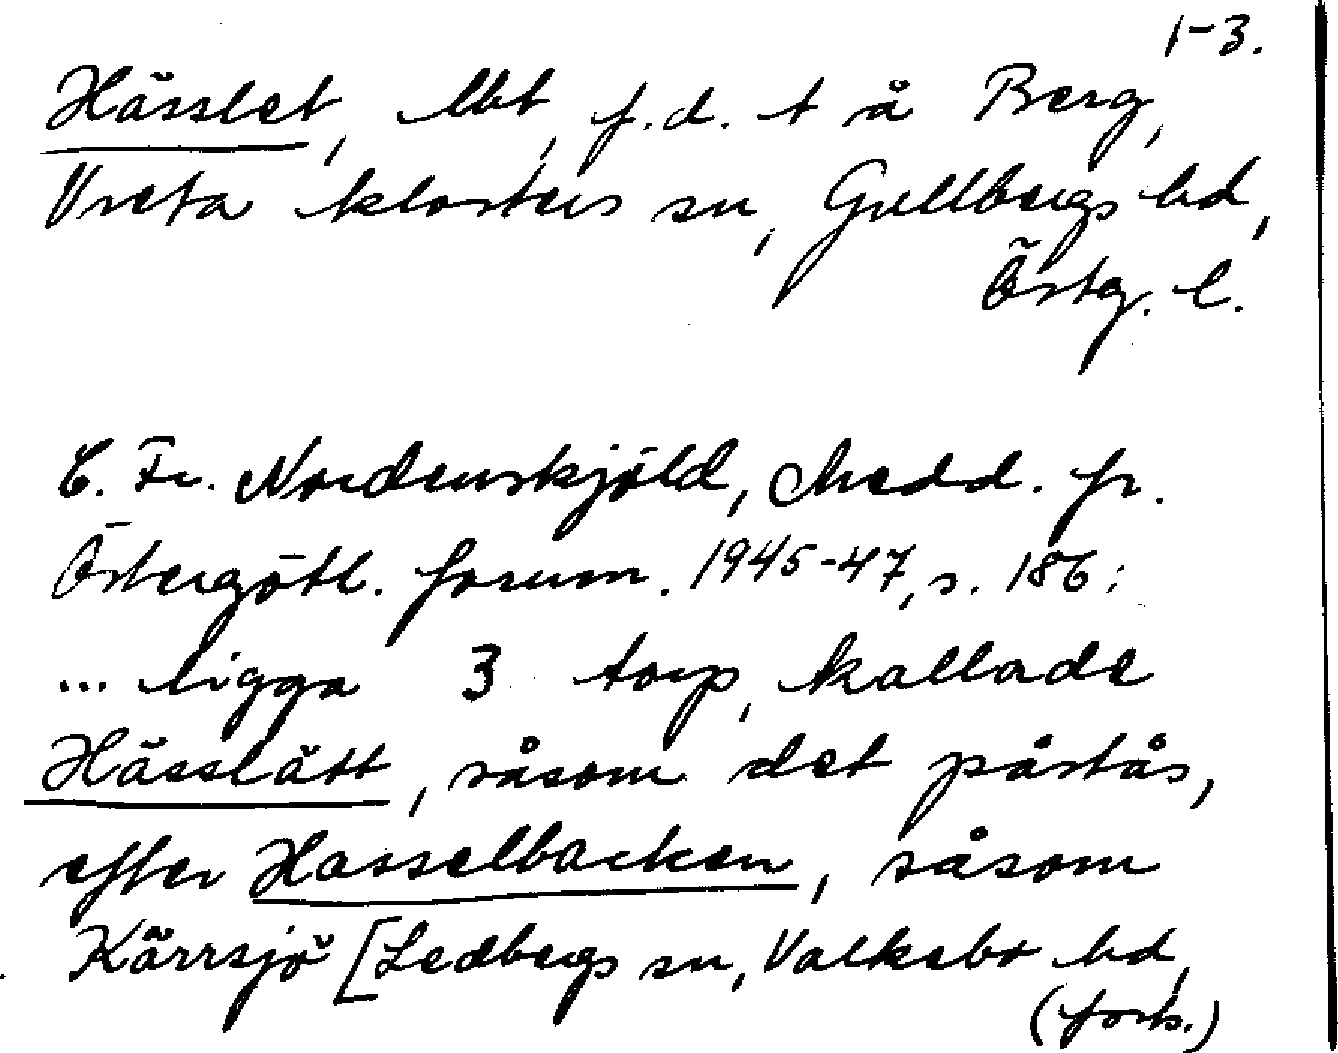 1-3.
Hässlet, lht, f.d. t å Berg,
Vreta klosters sn, Gullbergs hd,
Östg. l.
C. Fr. Nordenskjöld, Medd. fr.
Östergötl. fornm. 1945-47, s. 186:
... ligga 3 torp, kallade
Hässlätt, såsom det påstås,
efter Hasselbacken, såsom
Kärrsjö [Ledbergs sn, Valkebo hd,
(forts.)